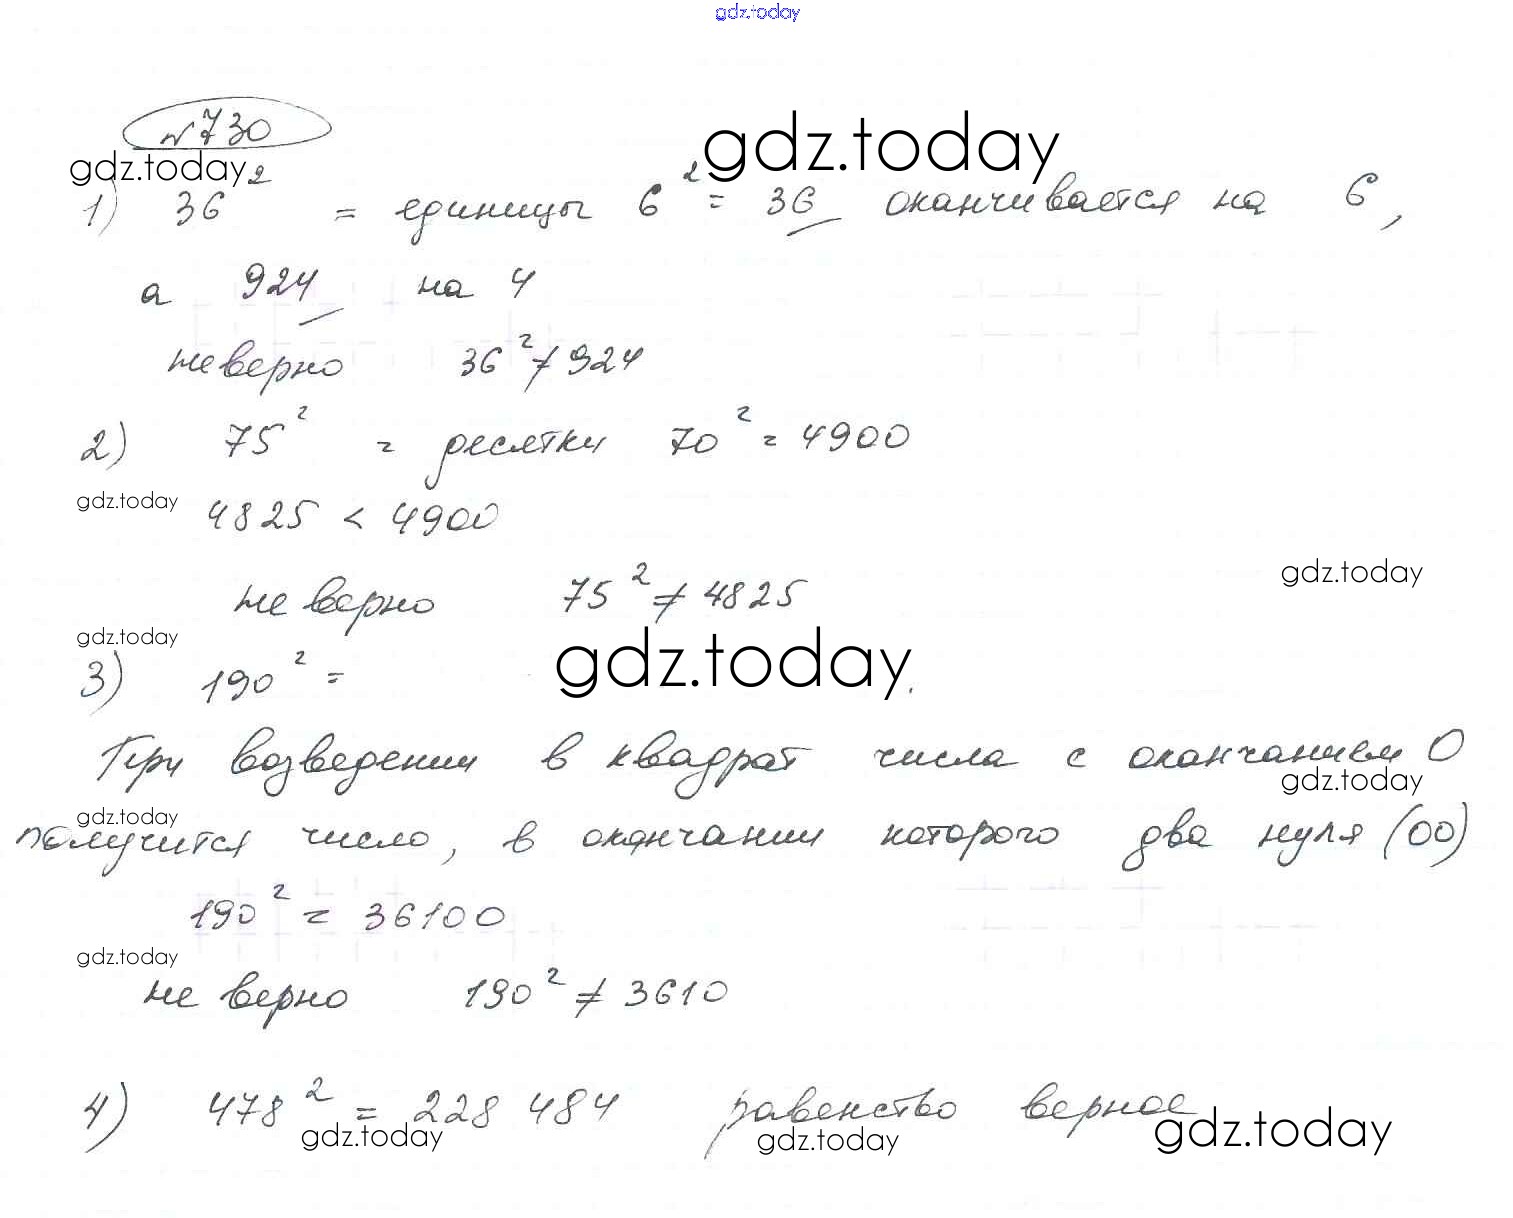 gdz.today
№730
gdz.today
gdz.today
1) 36² = единицы 6² = 36 оканчивается на 6,
а 924 на 4
не верно 36² ≠ 924
2) 75² = десятки 70² = 4900
gdz.today
4825 < 4900
gdz.today
не верно 75² ≠ 4825
gdz.today
gdz.today
3) 190² =
При возведении в квадрат числа с окончанием 0
gdz.today
gdz.today
получится число, в окончании которого два нуля (00)
190² = 36100
gdz.today
не верно 190² ≠ 3610
4) 478² = 228 484 равенство верное
gdz.today
gdz.today
gdz.today